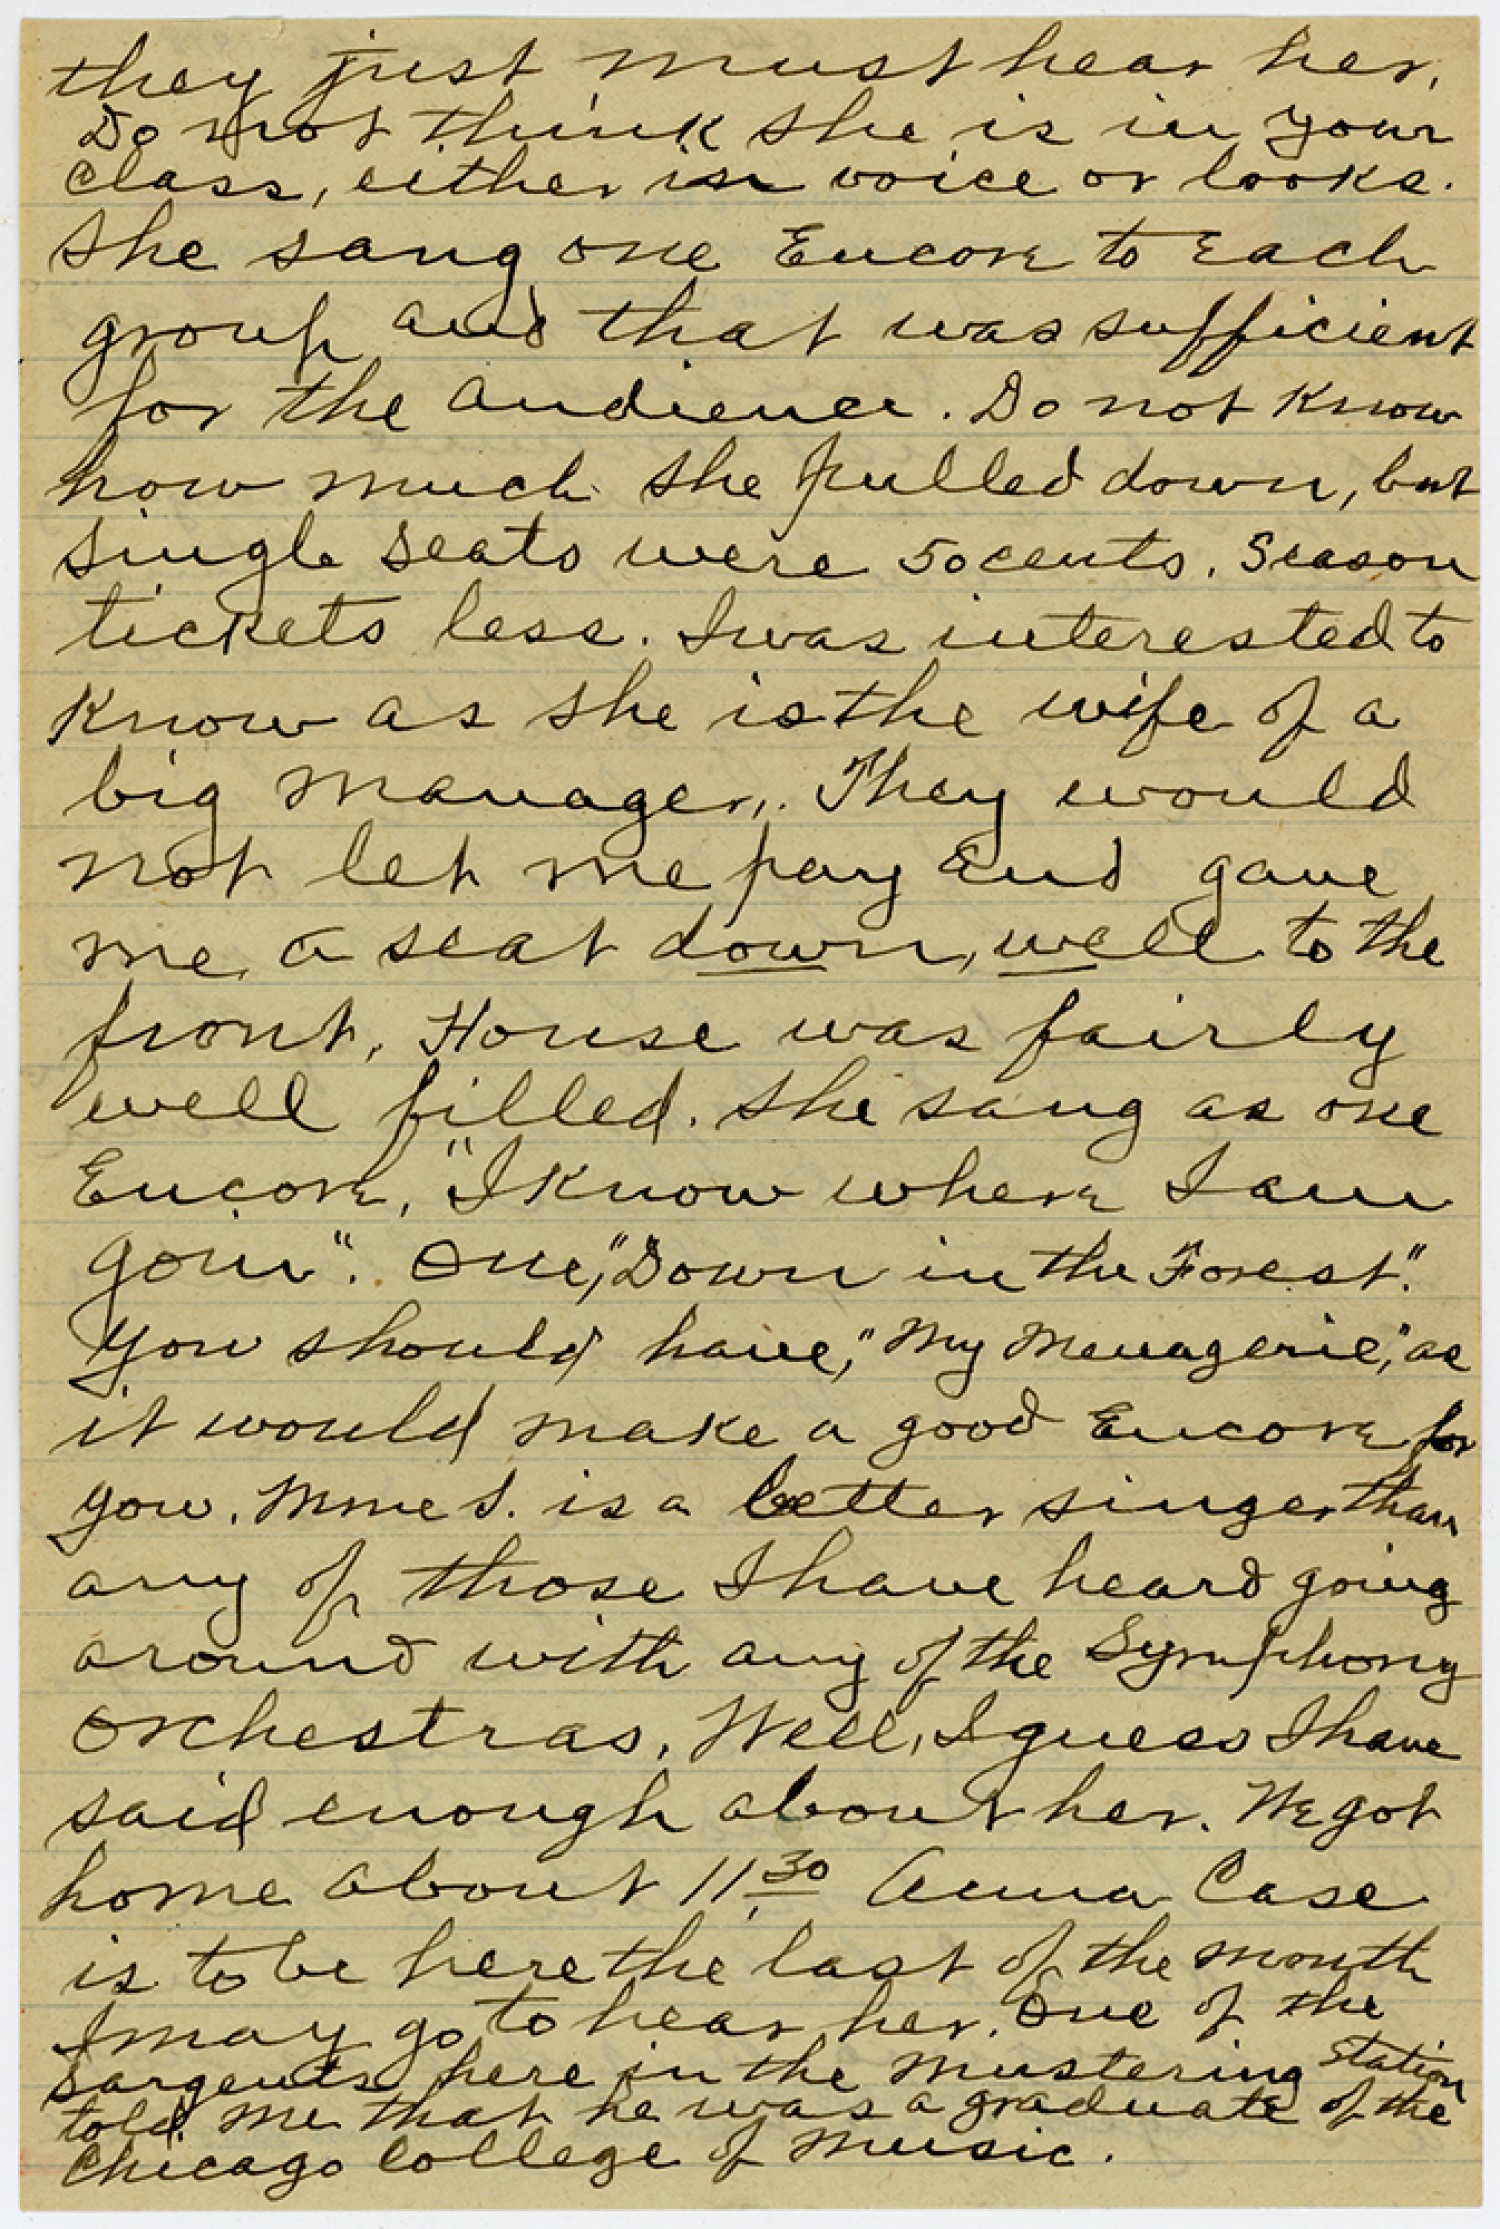 they just must hear her.
Do not think she is in your
class, either in voice or looks.
She sang one Encore to Each
group and that was sufficient
for the audience. Do not Know
how much she pulled down, but
single seats were 50 cents. Season
tickets less. I was interested to
Know as she is the wife of a
big manager,. They would
not let me pay and gave
me a seat down, well to the
front. House was fairly
well filled. She sang as one
Encore, "I Know where I am
goin". One, "Down in the Forest".
You should have, "My Menagerie", as
it would make a good Encore for
you. Mme S. is a better singer than
any of those I have heard going
around with any of the Symphony
Orchestras. Well, I guess I have
said enough about her. We got
home about 11.30 Anna Case
is to be here the last of the month
I may go to hear her. One of the
Sargents here in the mustering station
told me that he was a graduate of the
Chicago College of Music.